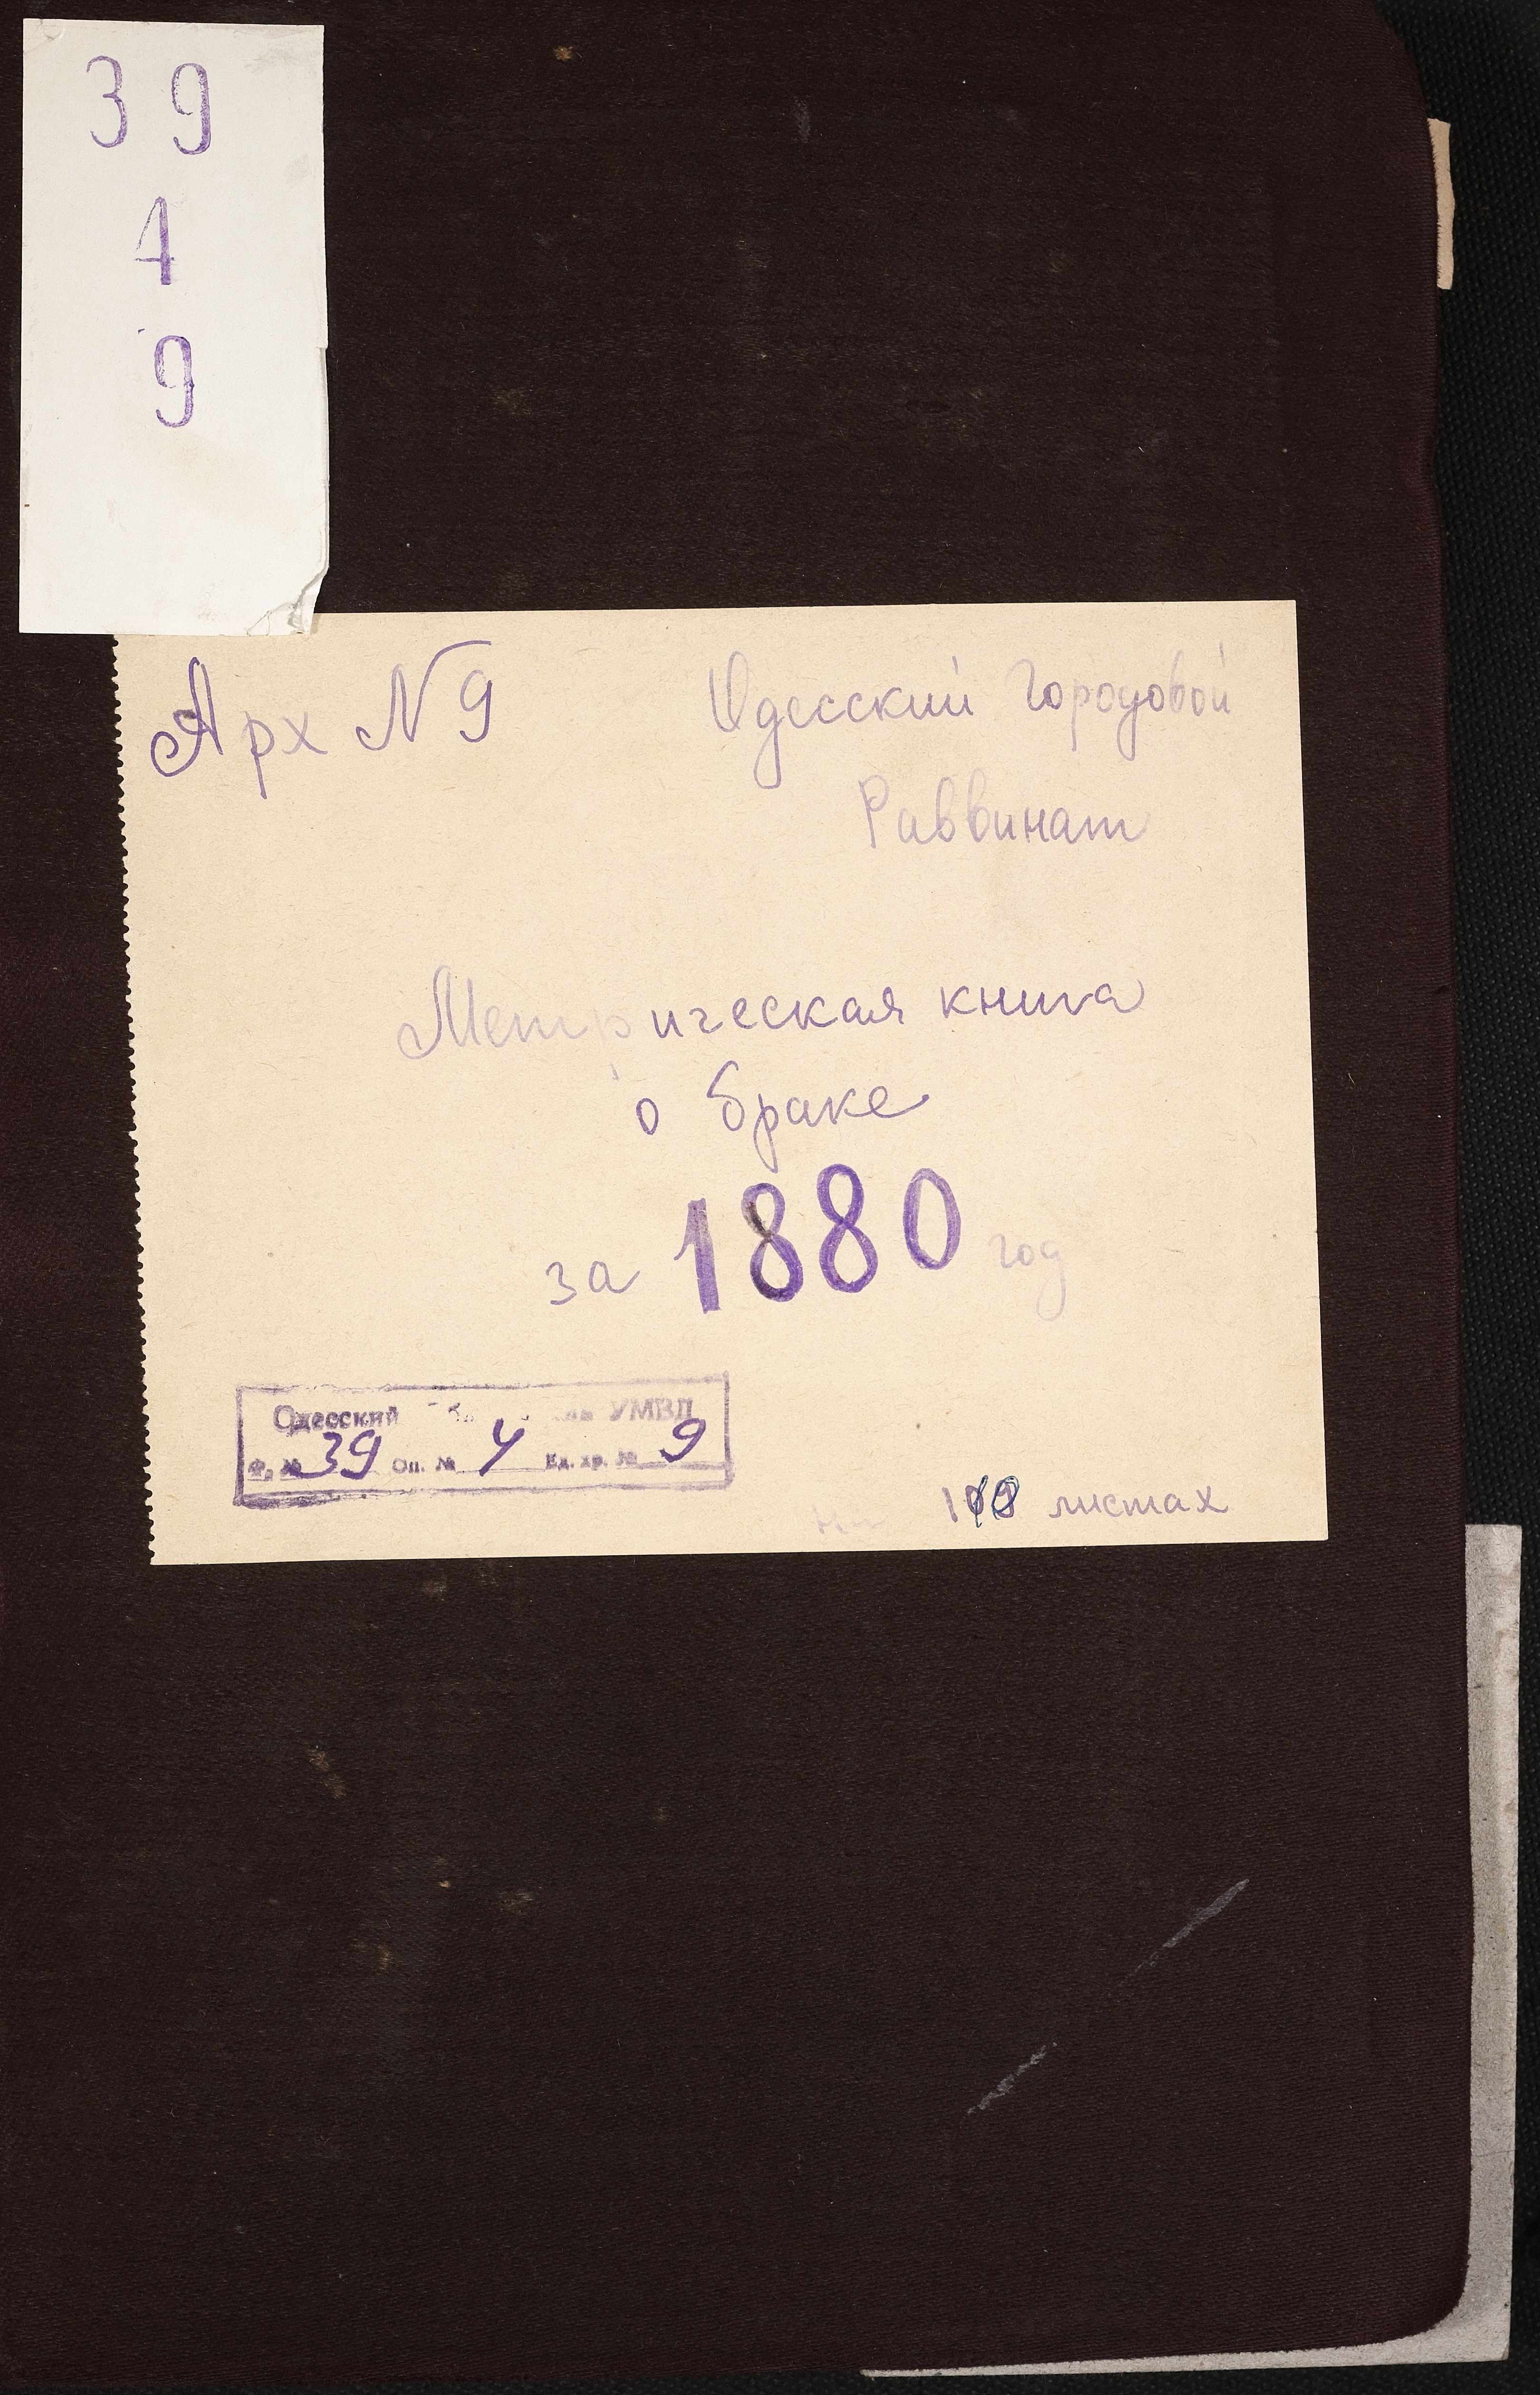 39
1
9
Арх N 9
Одесский Городовой
Раввинат
Метрическая книга
о браке
за 1880 год
Одесский УМВД
Ф. № 39 Оп. № 4 Ед. хр. № 9
листах